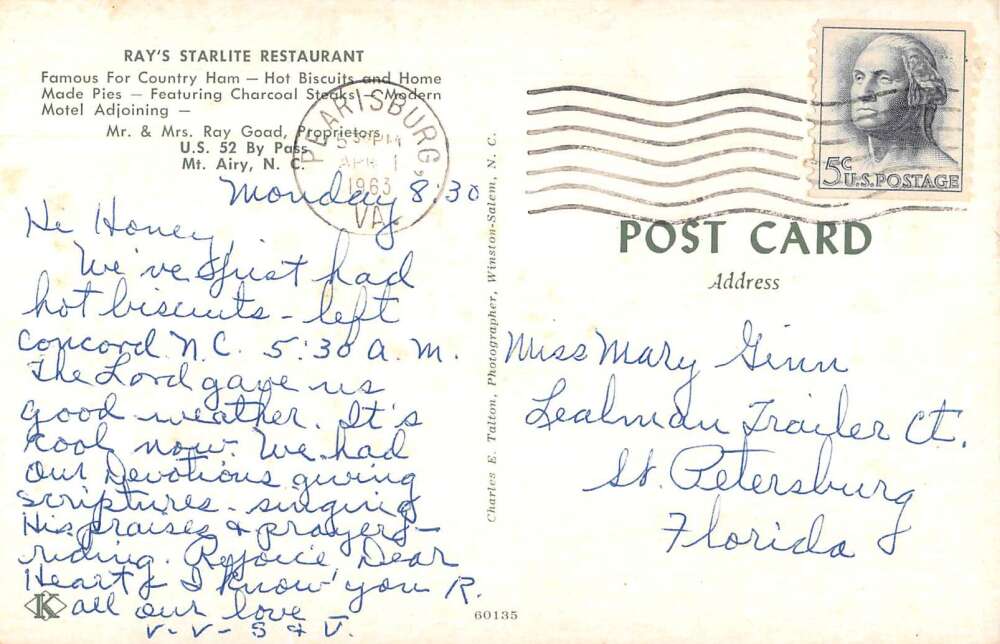 RAY'S STARLITE RESTAURANT
Famous For Country Ham — Hot Biscuits and Home
Made Pies — Featuring Charcoal Steaks — Modern
Motel Adjoining —
Mr. & Mrs. Ray Goad, Proprietors
U.S. 52 By Pass
Mt. Airy, N. C.
PEARISBURG,
5 30 PM
APR 1
1963
VA.
5c
U.S. POSTAGE
Monday 8:30
He Honey,
We've just had
hot biscuits - left
Concord N.C. 5:30 a.m.
The Lord gave us
good weather. It's
cool now. We had
our Devotions giving
scriptures - singing
His praises & prayers -
riding. Rejoice Dear
Heart & I know you R.
all our love
V-V-S & V.
K
Charles E. Talton, Photographer, Winston-Salem, N. C.
60135
POST CARD
Address
Miss Mary Ginn
Lealman Trailer Ct.
St. Petersburg
Florida